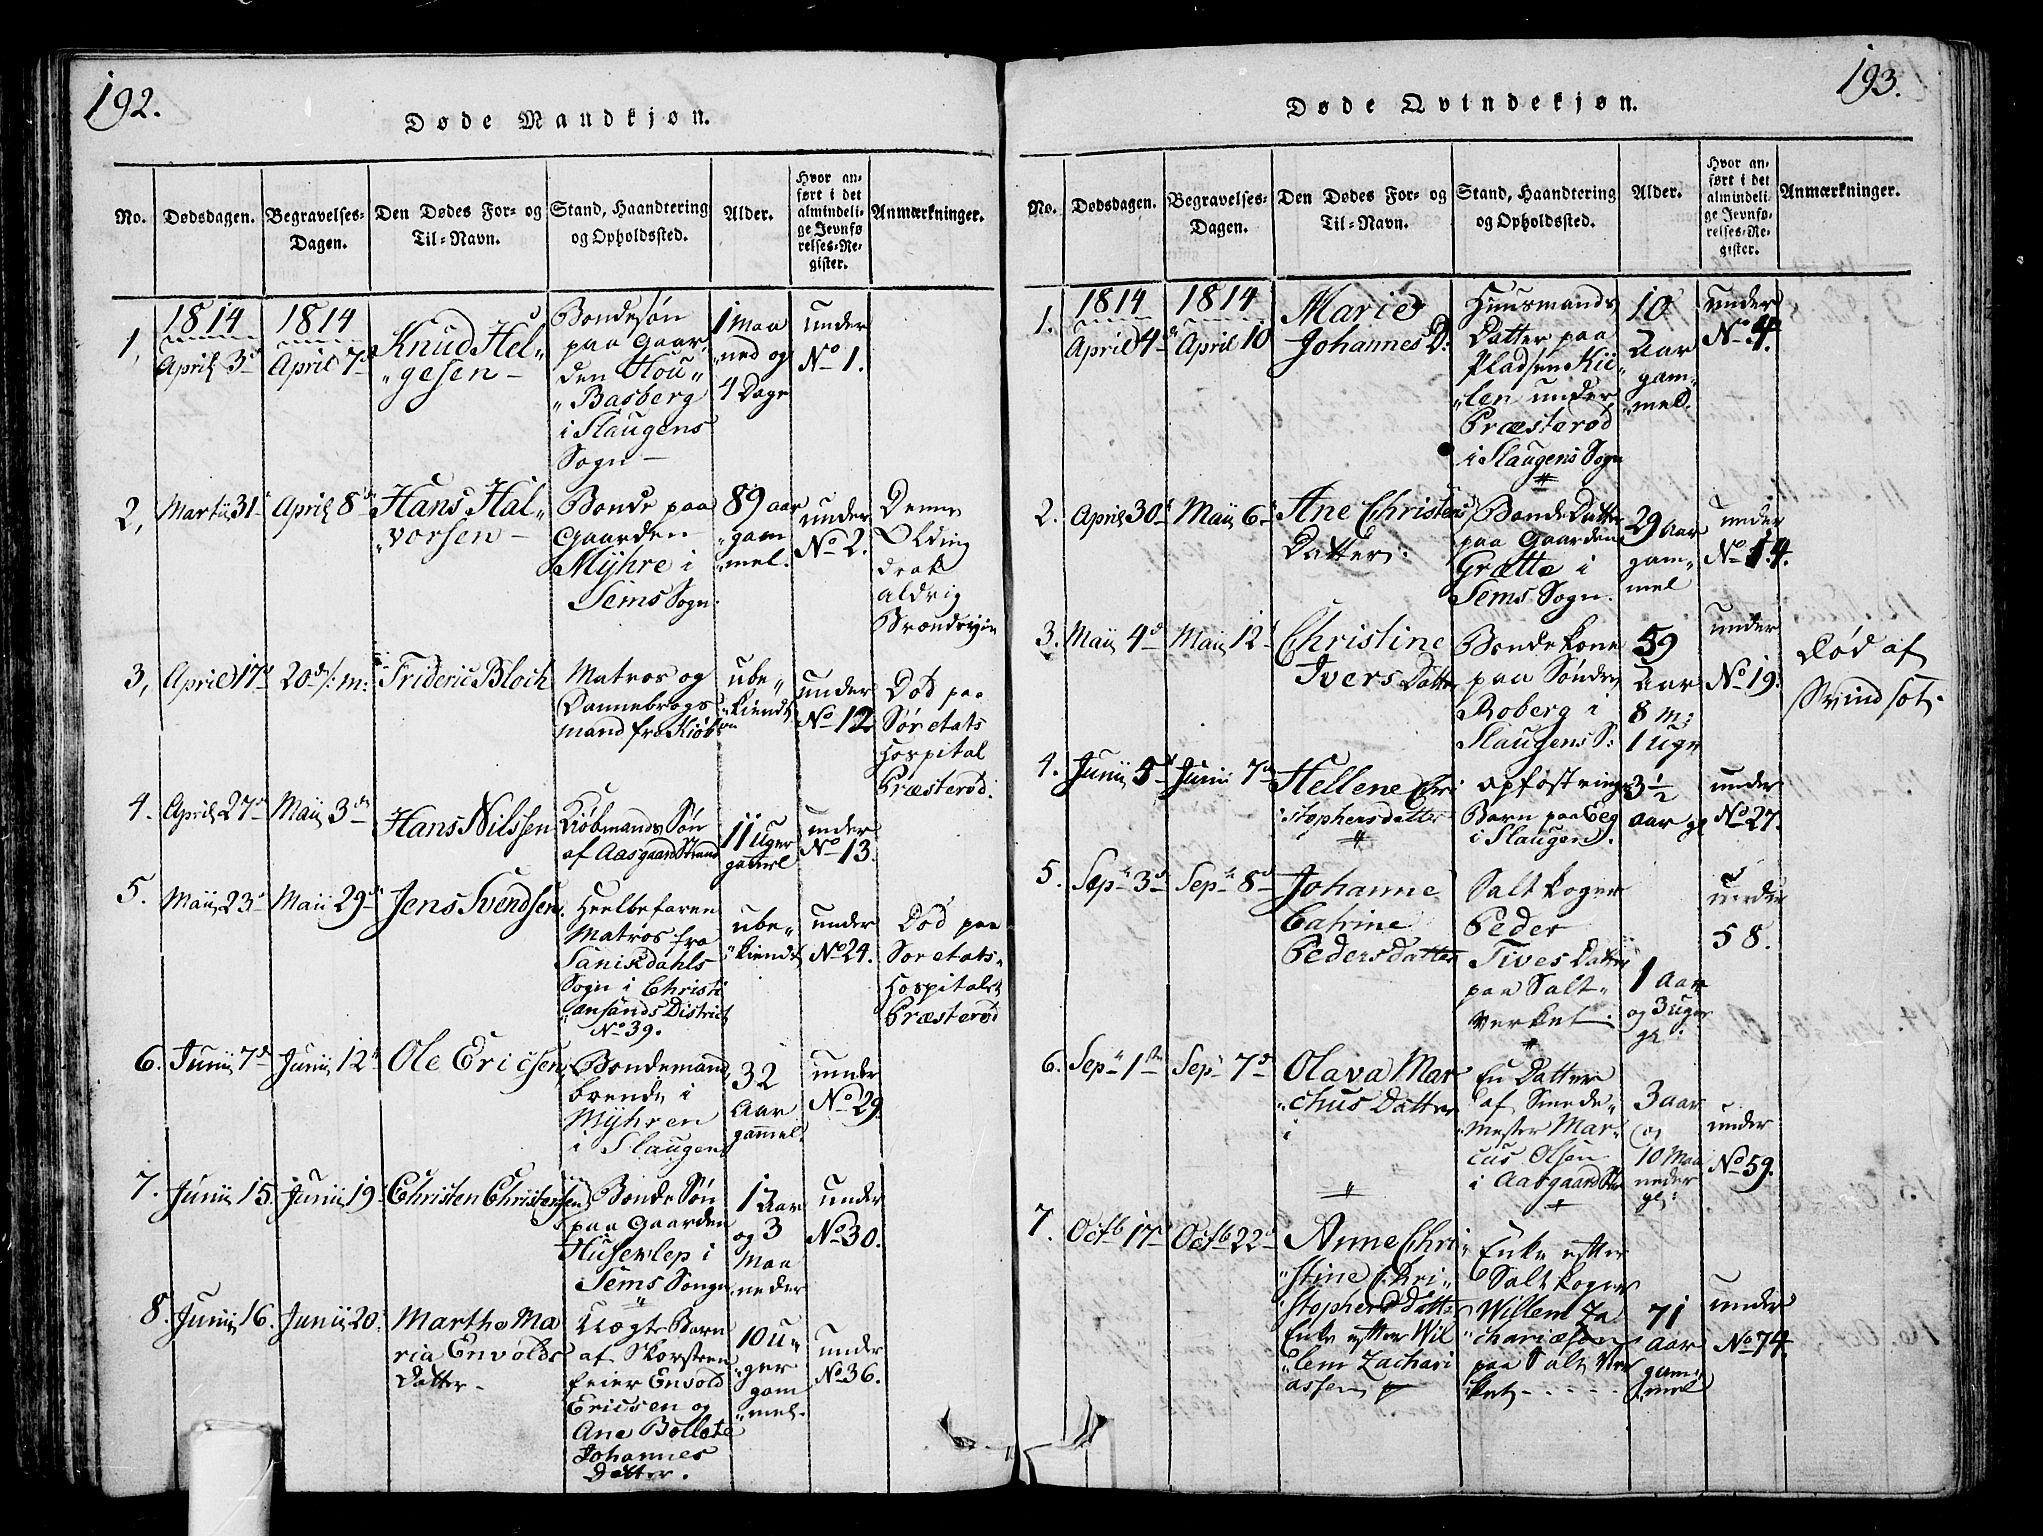 192.
Døde Mandkjøn.
No.
Dødsdagen.
Begravelses-
Dagen.
Den Dødes For- og
Til-Navn.
Stand, Haandtering
og Opholdssted.
Alder.
Hvor an-
ført i det
almindeli-
ge Jevnfø-
relses-Re-
gister.
Anmærkninger.
1,
1814
April 3d
1814
April 7d
Knud Hel„
„gesen –
Bondesøn
paa Gaar„
den Hou„
„Basberg
i Slaugens
Sogn –
1 Maa
ned og
4 Dage
under
No 1.
2,
Martii 31
April 8de
Hans Hal„
„vorsen –
Bonde paa
Gaarden
Mÿhre i
Sems Sogn.
89 aar
gam
„mel.
under
No 2.
Denne
Olding
drak
aldrig
Brændeviin
3,
April 17d
20d /: m:
Frideric Bloch
Matros og
Dannebrogs
mand fra Kiøb
ube„
„kiendt
under
No 12
Død paa
Søe etats
Hospital
Præsterød.
4.
April 27d
Maii 3de
Hans Nilssen
Kiøbmands Søn
af Aasgaard Strand
11 Uger
gamel
under
No 13.
5.
Maii 23d
Maii 29d
Jens Svendsen.
Heelbefaren
Matros fra
Sanikdahls
Sogn i Christi
„ansands District
No 39.
ube„
„kiendt
under
No 24.
Død paa
Søe etats„
Hospitalet
Præsterød
6.
Junii 7d
Junii 12t
Ole Ericsen
Bondemand
boende i
Mÿhren
i Slaugen
32
Aar
gammel.
under
No 29
7.
Junii 15.
Junii 19
Christen Christensen
Bonde Søn
paa Gaarden
Huseklep i
Sems Songn
1 Aar
og 3
Maa
neder
under
No 30.
8.
Junii 16.
Junii 20.
Martha Ma
ria Envolds
Datter –
Uægte Barn
af Skorsteen
feier Envold
Ericsen og
Ane Bollete
Johannes
Datter.
10 U„
„ger
gam
„mel.
under
No 36.
193.
Døde Qvindekjøn.
No.
Dødsdagen.
Begravelses-
Dagen.
Den Dødes For- og
Til-Navn.
Stand, Haandtering
og Opholdssted.
Alder.
Hvor an-
ført i det
almindeli-
ge Jevnfø-
relses-Re-
gister.
Anmærkninger.
1.
1814
April 4de
1814
April 10
Marie
Johannes D:
Huusmands
Datter paa
Pladsen Kii„
„len under
Præsterød
i Slaugens Sogn
10
Aar
gam„
„mel.
under
No 4.
2.
April 30d
Maii 6t
Ane Christens
Datter.
Bonde Datter
paa Gaarden
Grætte i
Sems Sogn.
29 Aar
gam„
mel
under
No 14.
3.
Maii 4d
Maii 12t
Christine
Ivers Datter
Bondekone
paa Søndre
Roberg i
Slaugens S:
59
Aar
8 M:
1 uge
under
No 19.
Død af
Svindsot.
4.
Junii 5t
Junii 7d
Hellene Chri
stophersdatter
opfostrings
Barn paa Eeg
i Slaugen.
3 1/2
aar gl
under
No 27.
5.
Sepr 3d
Sepr 8d
Johanne
Catrine
Pedersdatter
Saltkoger
Peder
Tives Datter
paa Salt„
verket.
1 Aar
og 3 uger
gl.
under
58.
6.
Sepr 1ste
Sepr 7d
Olava Mar
„chus Datter
En Datter
af Smede„
Mester Mar„
cus Olsen
i Aasgaard Str
3 aar
og
10 Maa
neder
gl:
under
No 59.
7.
Octb 17d
Octb 22d
Anne Chri„
„stine Chri„
Stophers datter
Enke efter Wil
„lem Zachari
assen
Enke efter
Saltkoger
Willem Za
„chariæsen
paa Salt Ver
ket - - - - -
71
aar
gam„
mel
under
No 74.